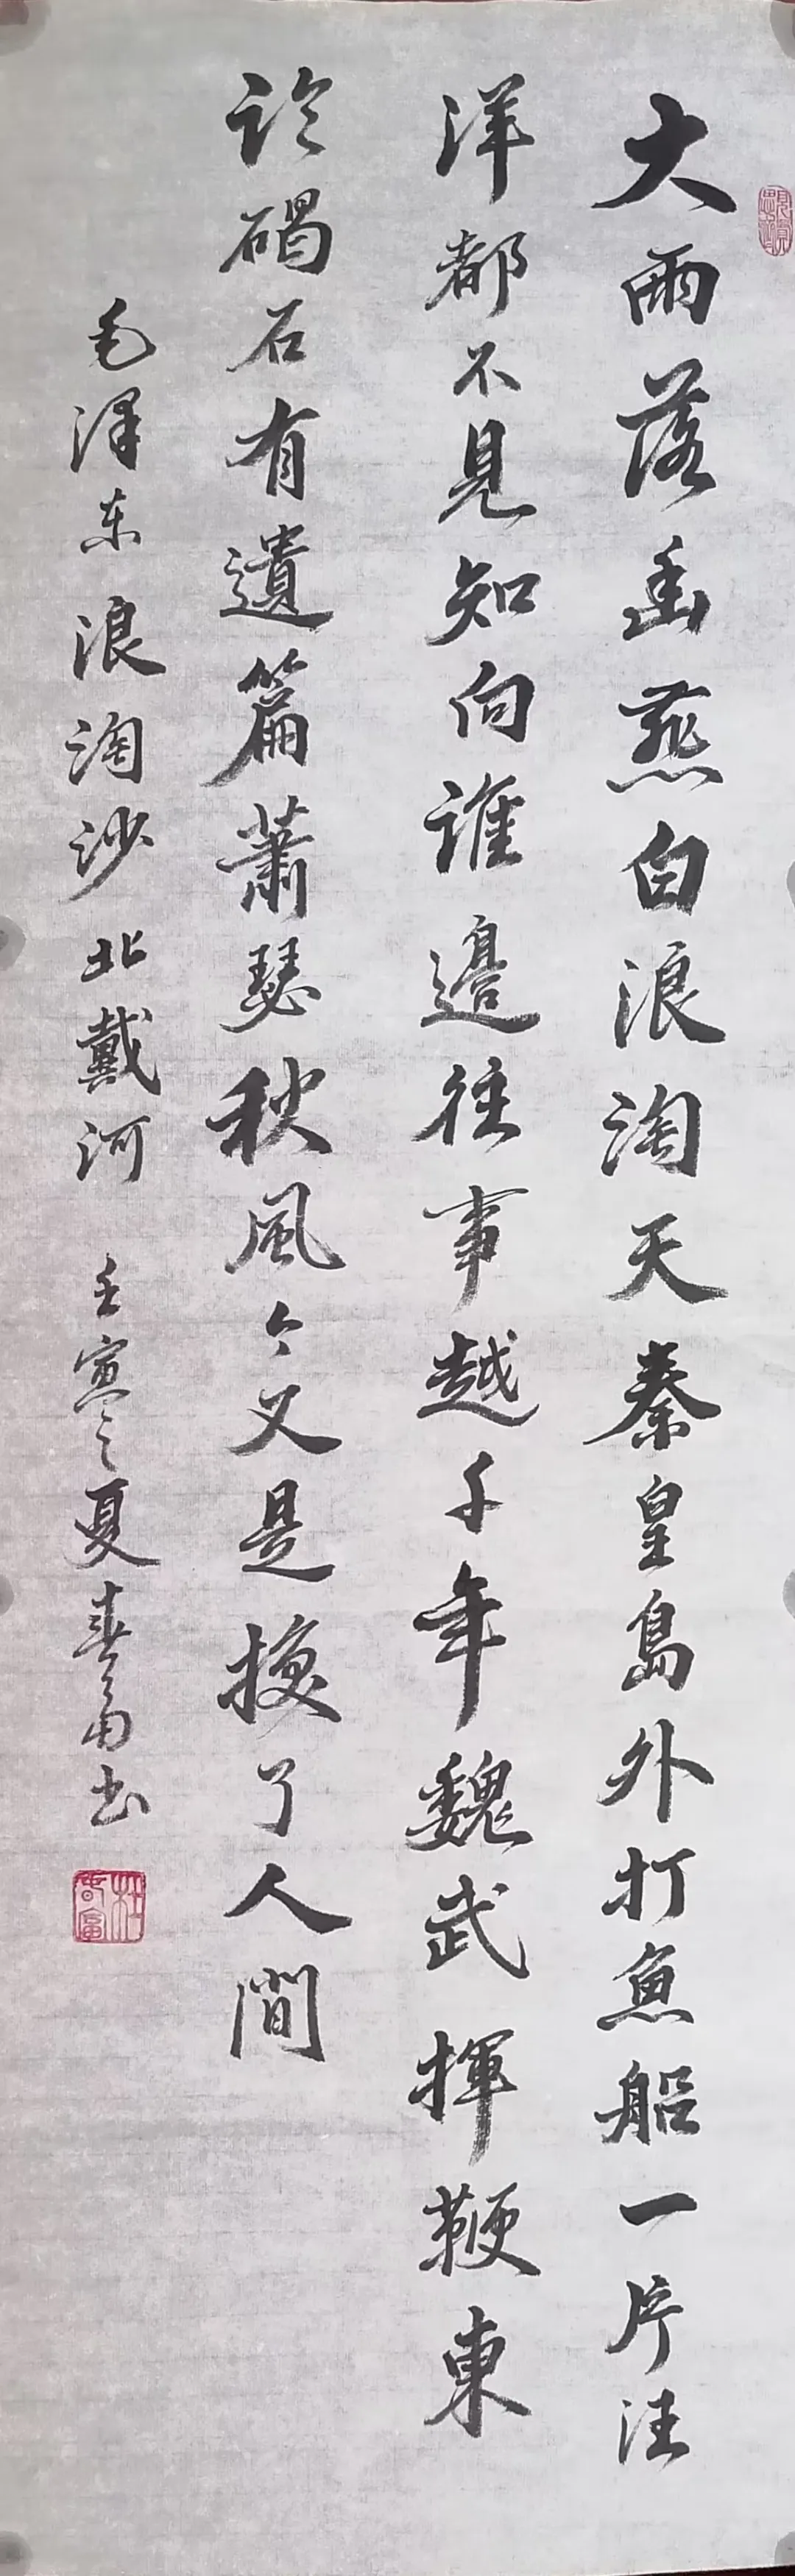 大雨落幽燕白浪淘天秦皇島外打魚船一片汪
洋都不見知向誰邊往事越千年魏武揮鞭東
临碣石有遺篇蕭瑟秋風今又是換了人間
毛澤东浪淘沙北戴河 壬寅之夏春富书